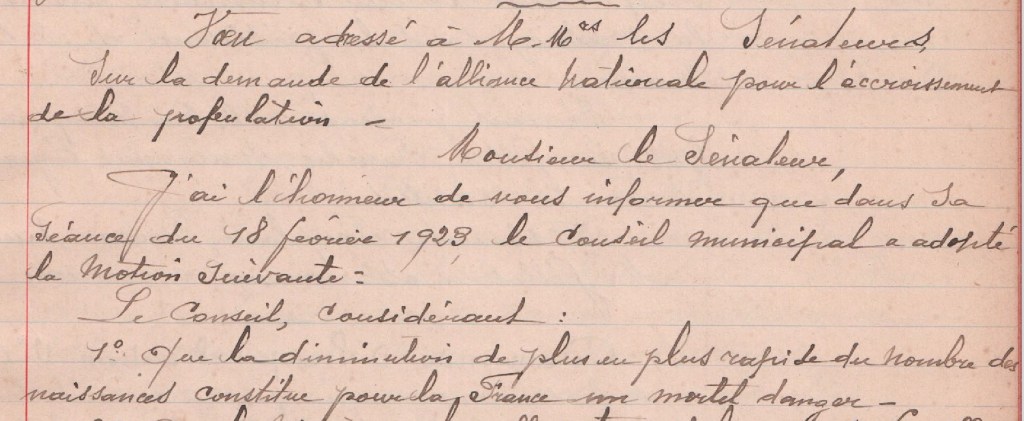 Vœu adressé à M.Mrs les Sénateurs,
Sur la demande de l'alliance Nationale pour l'accroissement
de la population -
Monsieur le Sénateur,
J'ai l'honneur de vous informer que dans sa
Séance du 18 février 1923, le Conseil municipal a adopté
la Motion suivante =
Le Conseil, considérant :
1° Que la diminution de plus en plus rapide du nombre des
naissances constitue pour la France un mortel danger -